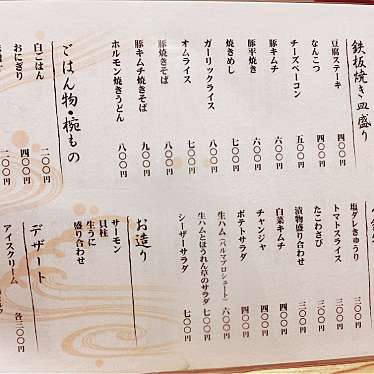 鉄板焼き皿盛り
豆腐ステーキ 四〇〇円
なんこつ 四〇〇円
チーズベーコン 五〇〇円
豚キムチ 六〇〇円
豚平焼き 六〇〇円
焼きめし 七〇〇円
ガーリックライス 八〇〇円
オムライス 七〇〇円
豚焼きそば 八〇〇円
豚キムチ焼きそば 九〇〇円
ホルモン焼きうどん 八〇〇円
ごはん物・椀もの
白ごはん 二〇〇円
おにぎり 四〇〇円
二〇〇円
塩ダレきゅうり 三〇〇円
トマトスライス 三〇〇円
たこわさび 三〇〇円
漬物盛り合わせ 三〇〇円
白菜キムチ 四〇〇円
チャンジャ 四〇〇円
ポテトサラダ 四〇〇円
生ハム(パルマプロシュート) 六〇〇円
生ハムとほうれん草のサラダ 七〇〇円
シーザーサラダ 七〇〇円
お造り
サーモン
貝柱
生うに
盛り合わせ
デザート
アイスクリーム 各三〇〇円